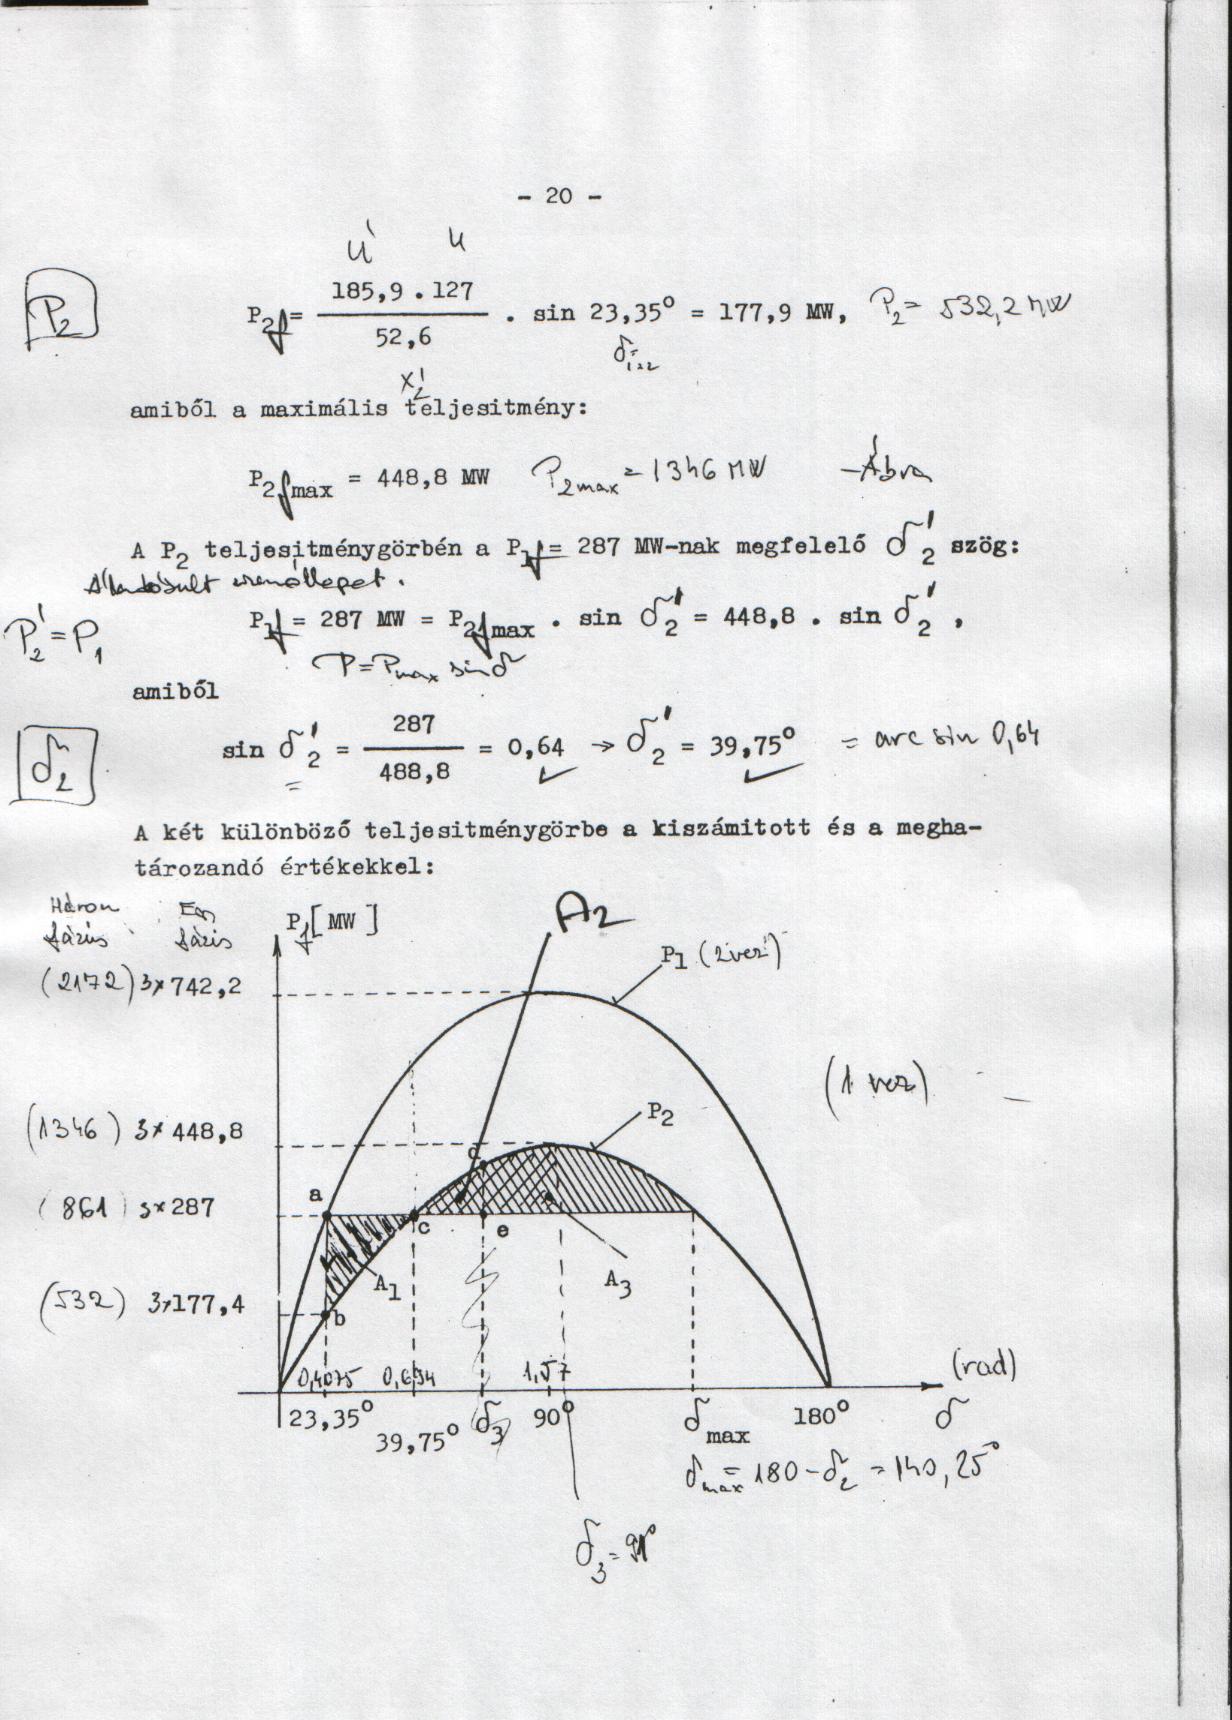 - 20 -
U' U
P₂
P₂f = 185,9 . 127 / 52,6 . sin 23,35° = 177,9 MW, P₂ = 532,2 MW
X₂'
amiből a maximális teljesitmény:
P₂f max = 448,8 MW P₂max = 1346 MW - Ábra
A P₂ teljesitménygörbén a P₁f = 287 MW-nak megfelelő δ₂' szög:
P₂' = P₁
P₁f = 287 MW = P₂f max . sin δ₂' = 448,8 . sin δ₂' ,
P = Pmax sin δ
amiből
δ₂
sin δ₂' = 287 / 488,8 = 0,64 → δ₂' = 39,75° = arc sin 0,64
A két különböző teljesitménygörbe a kiszámitott és a megha-
tározandó értékekkel:
Három fázis Egy fázis
Pf [ MW ]
A₂
P₁ (2 vez)
(2172) 3x 742,2
(1 vez)
P₂
(1346) 3x 448,8
d
a
(861) 3x 287
c e
A₁ A₃
(532) 3x 177,4
b
0,4075 0,694 1,57 (rad)
23,35° 39,75° δ₃ 90° δmax 180° δ
δmax = 180 - δ₂ = 140,25°
δ₃ = 91°